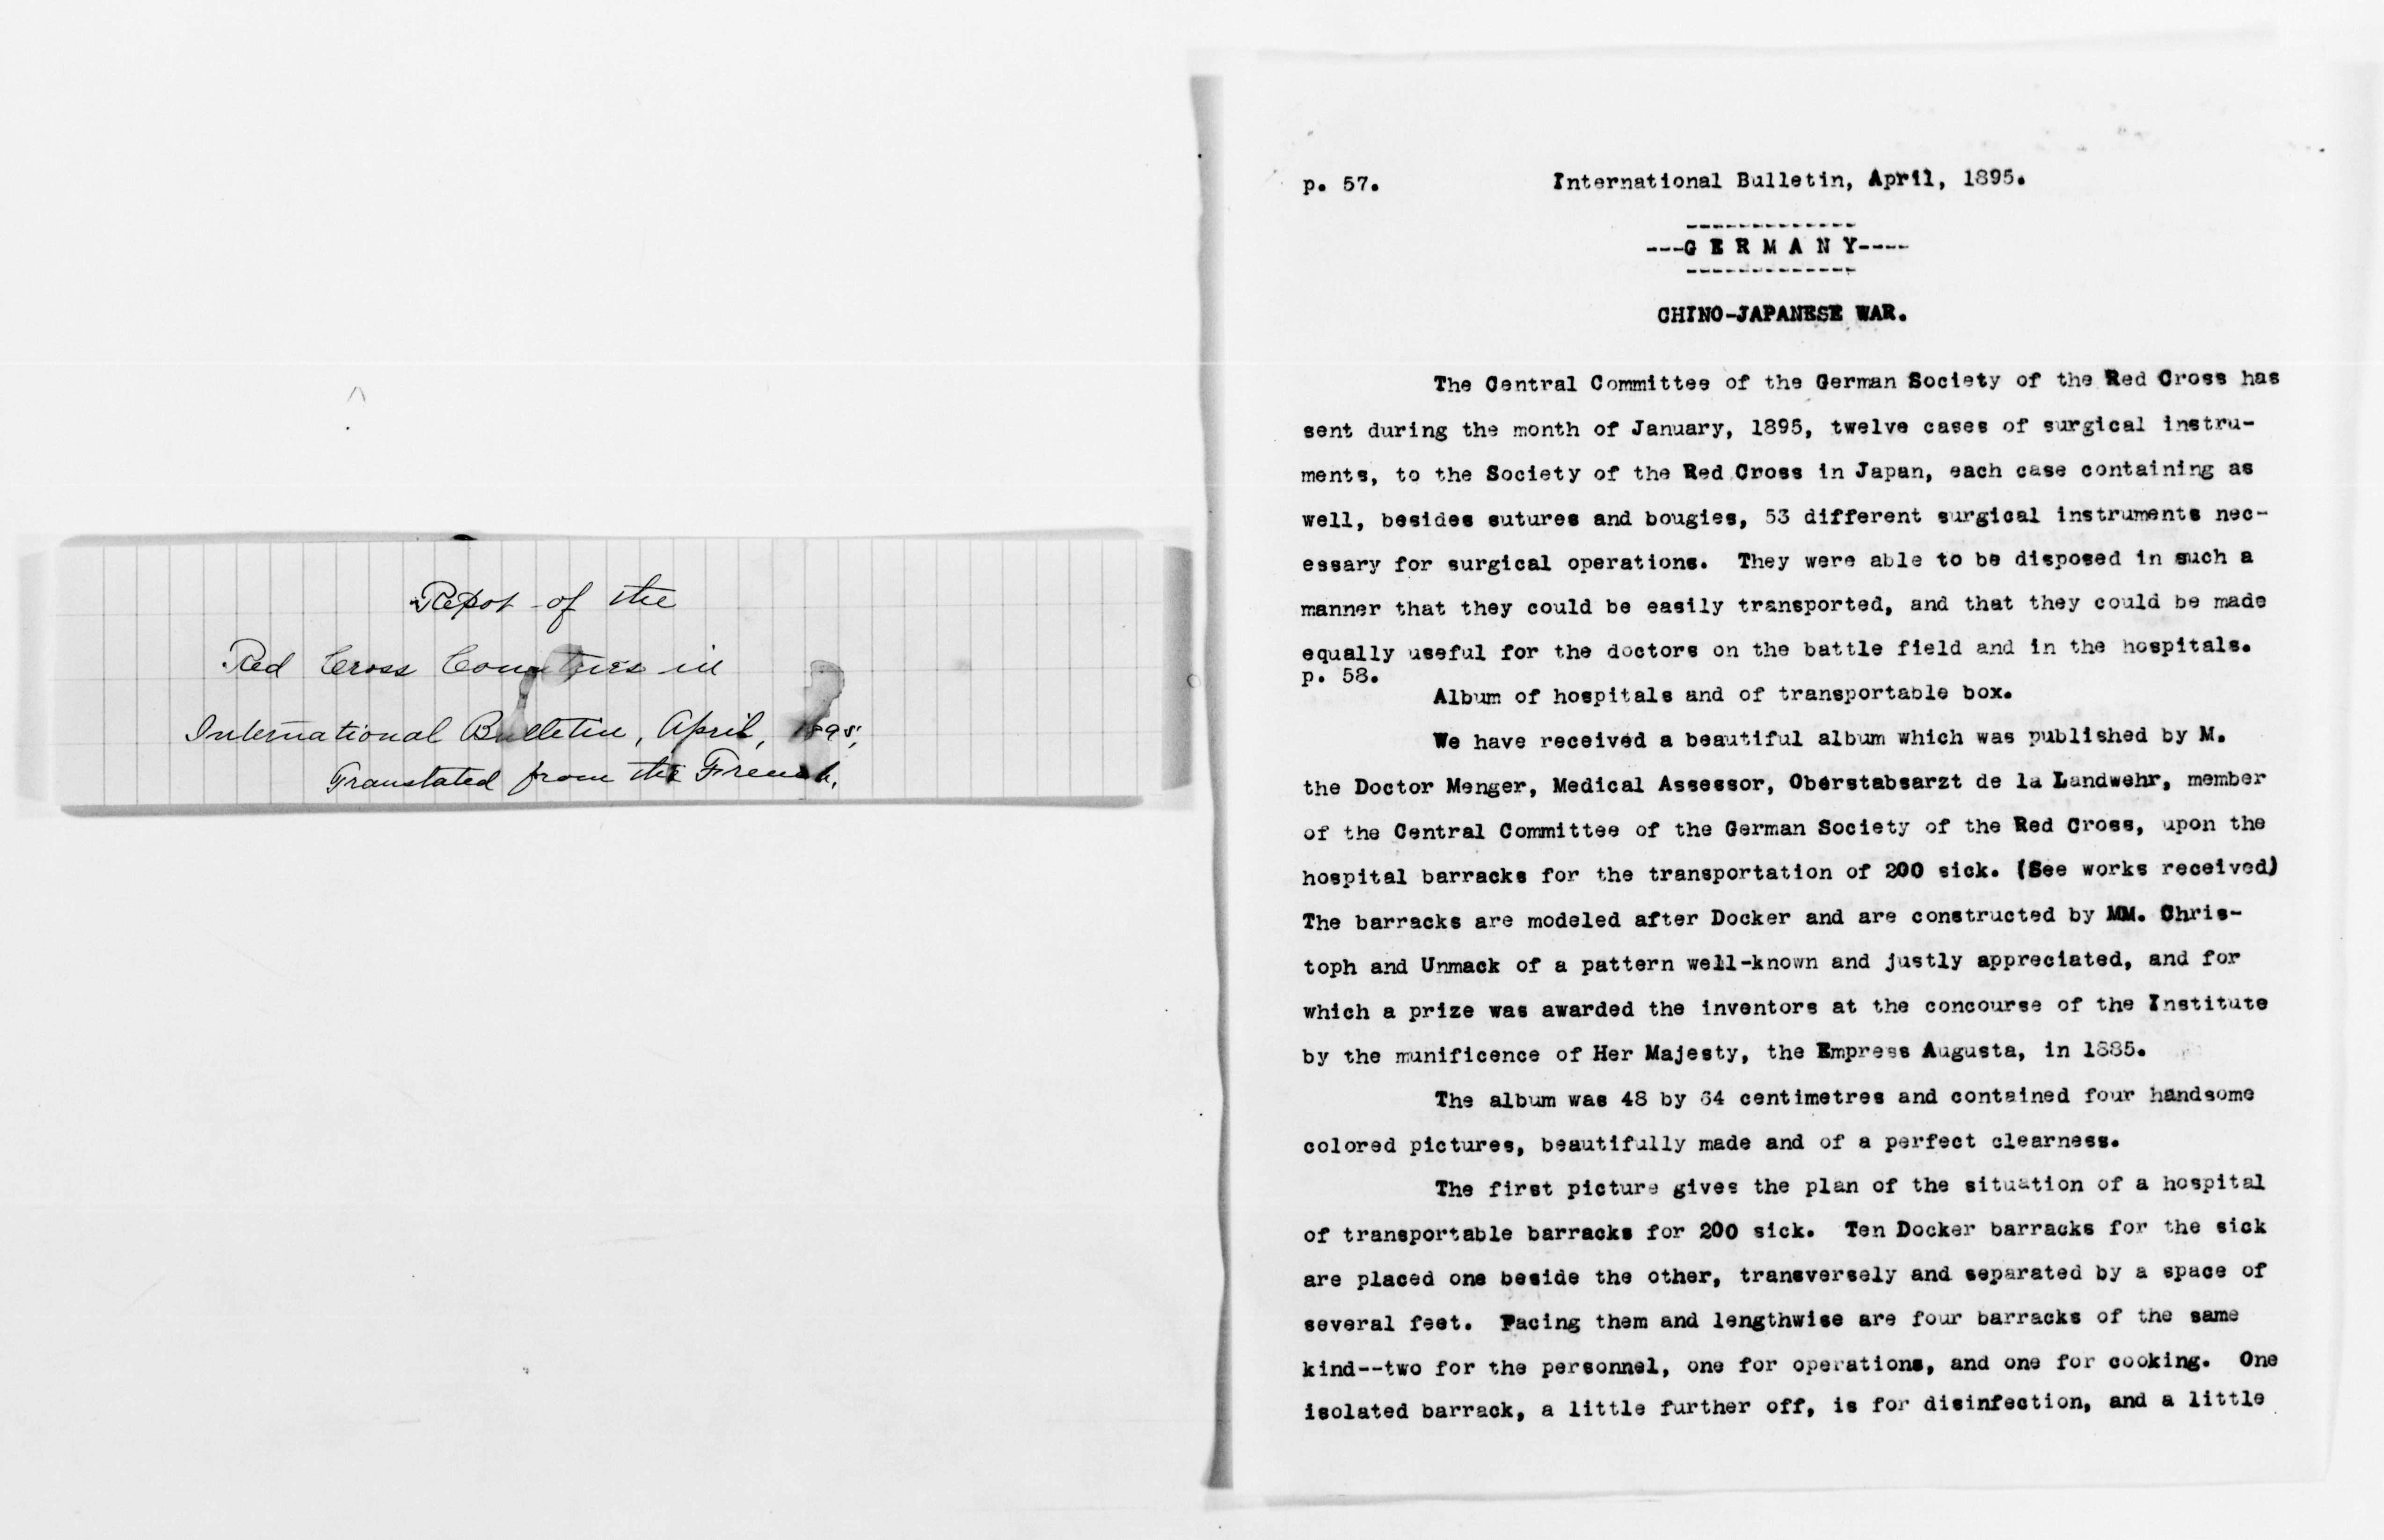 Repot of the
Red Cross Countries in
International Bulletin, April, 1895,
Translated from the French.
p. 57. International Bulletin, April, 1895.
--------------
---G E R M A N Y----
--------------
CHINO-JAPANESE WAR.
The Central Committee of the German Society of the Red Cross has
sent during the month of January, 1895, twelve cases of surgical instru-
ments, to the Society of the Red Cross in Japan, each case containing as
well, besides sutures and bougies, 53 different surgical instruments nec-
essary for surgical operations. They were able to be disposed in such a
manner that they could be easily transported, and that they could be made
equally useful for the doctors on the battle field and in the hospitals.
p. 58.
Album of hospitals and of transportable box.
We have received a beautiful album which was published by M.
the Doctor Menger, Medical Assessor, Oberstabsarzt de la Landwehr, member
of the Central Committee of the German Society of the Red Cross, upon the
hospital barracks for the transportation of 200 sick. (See works received)
The barracks are modeled after Docker and are constructed by MM. Chris-
toph and Unmack of a pattern well-known and justly appreciated, and for
which a prize was awarded the inventors at the concourse of the Institute
by the munificence of Her Majesty, the Empress Augusta, in 1885.
The album was 48 by 64 centimetres and contained four handsome
colored pictures, beautifully made and of a perfect clearness.
The first picture gives the plan of the situation of a hospital
of transportable barracks for 200 sick. Ten Docker barracks for the sick
are placed one beside the other, transversely and separated by a space of
several feet. Facing them and lengthwise are four barracks of the same
kind--two for the personnel, one for operations, and one for cooking. One
isolated barrack, a little further off, is for disinfection, and a little